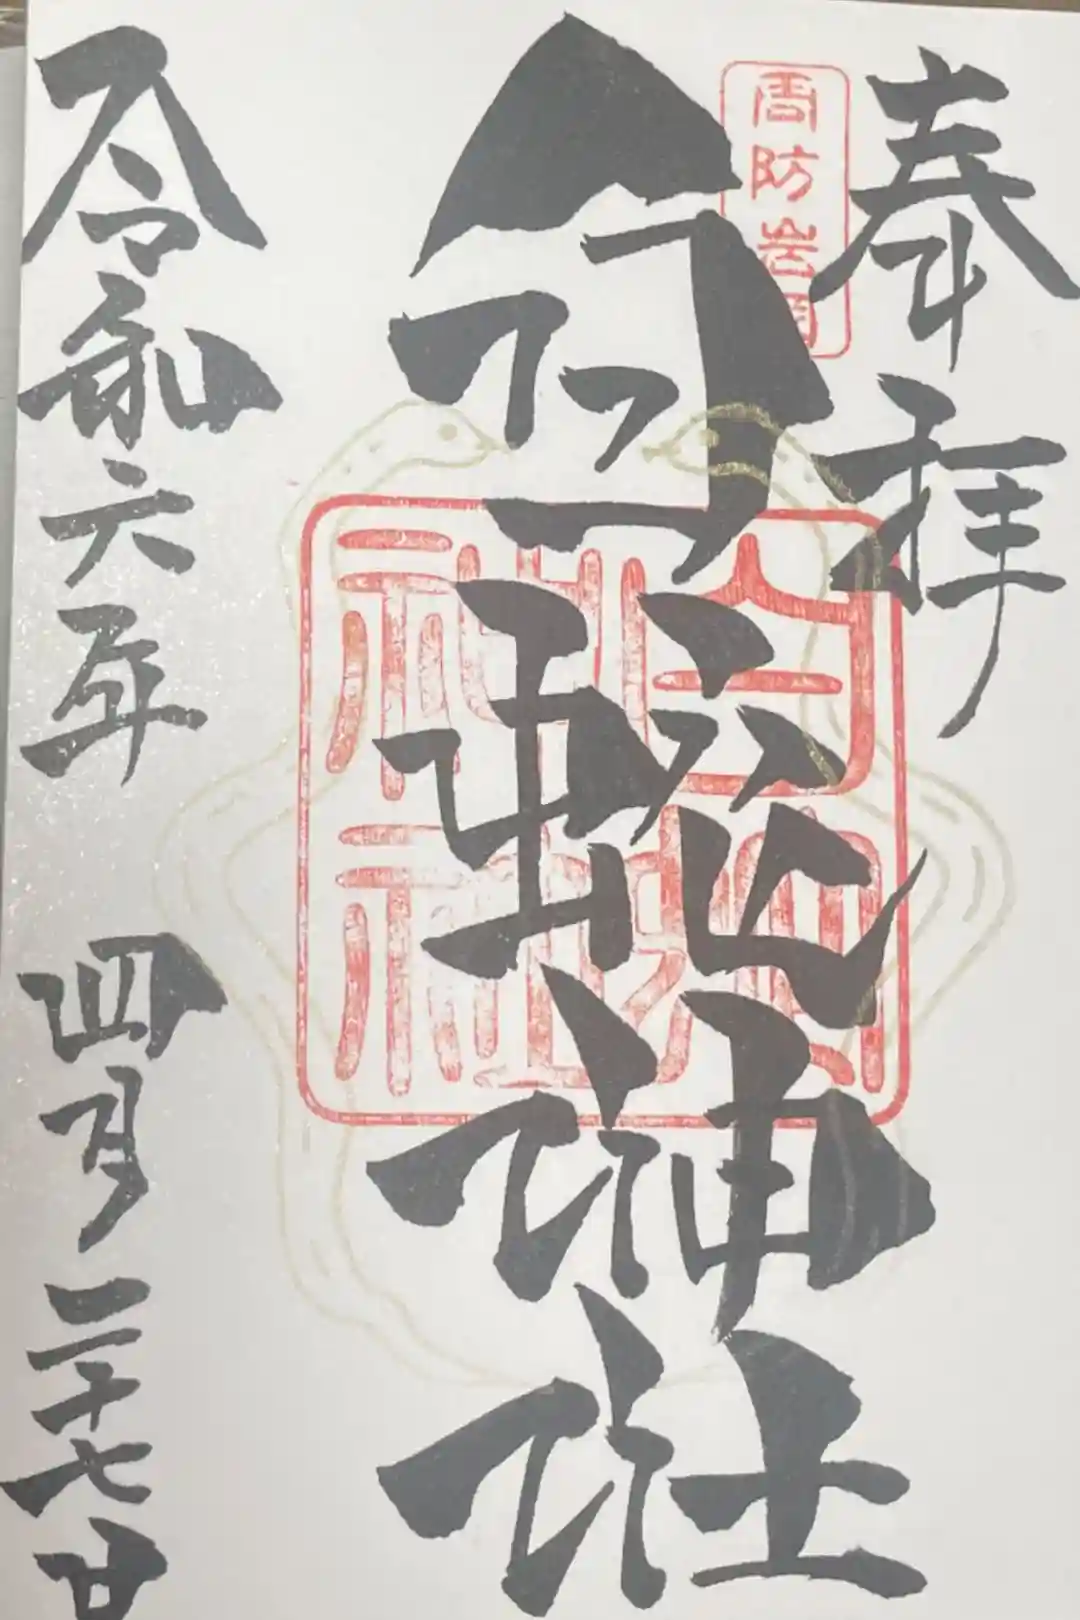 奉拝
周防岩国
白蛇神社
白蛇神社
令和六年 四月二十七日